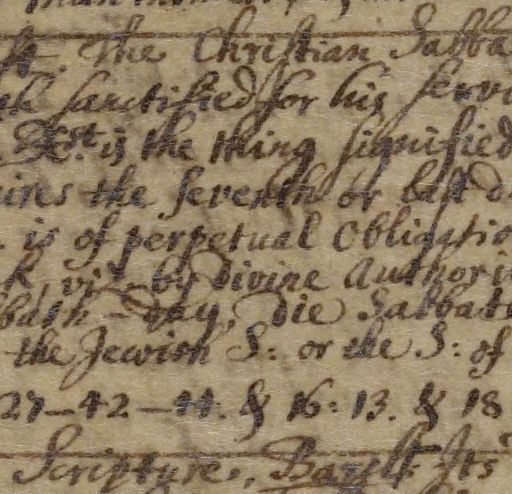 The Christian Sabba
sanctified for his servi
&c. is the thing signified
ires the seventh or last d
is of perpetual obligatio
k, viz by divine Authorit
bbath-day, Die Sabbat
the Jewish S: or the S: of
27-42-44. & 16: 13. & 18
Scripture, Its